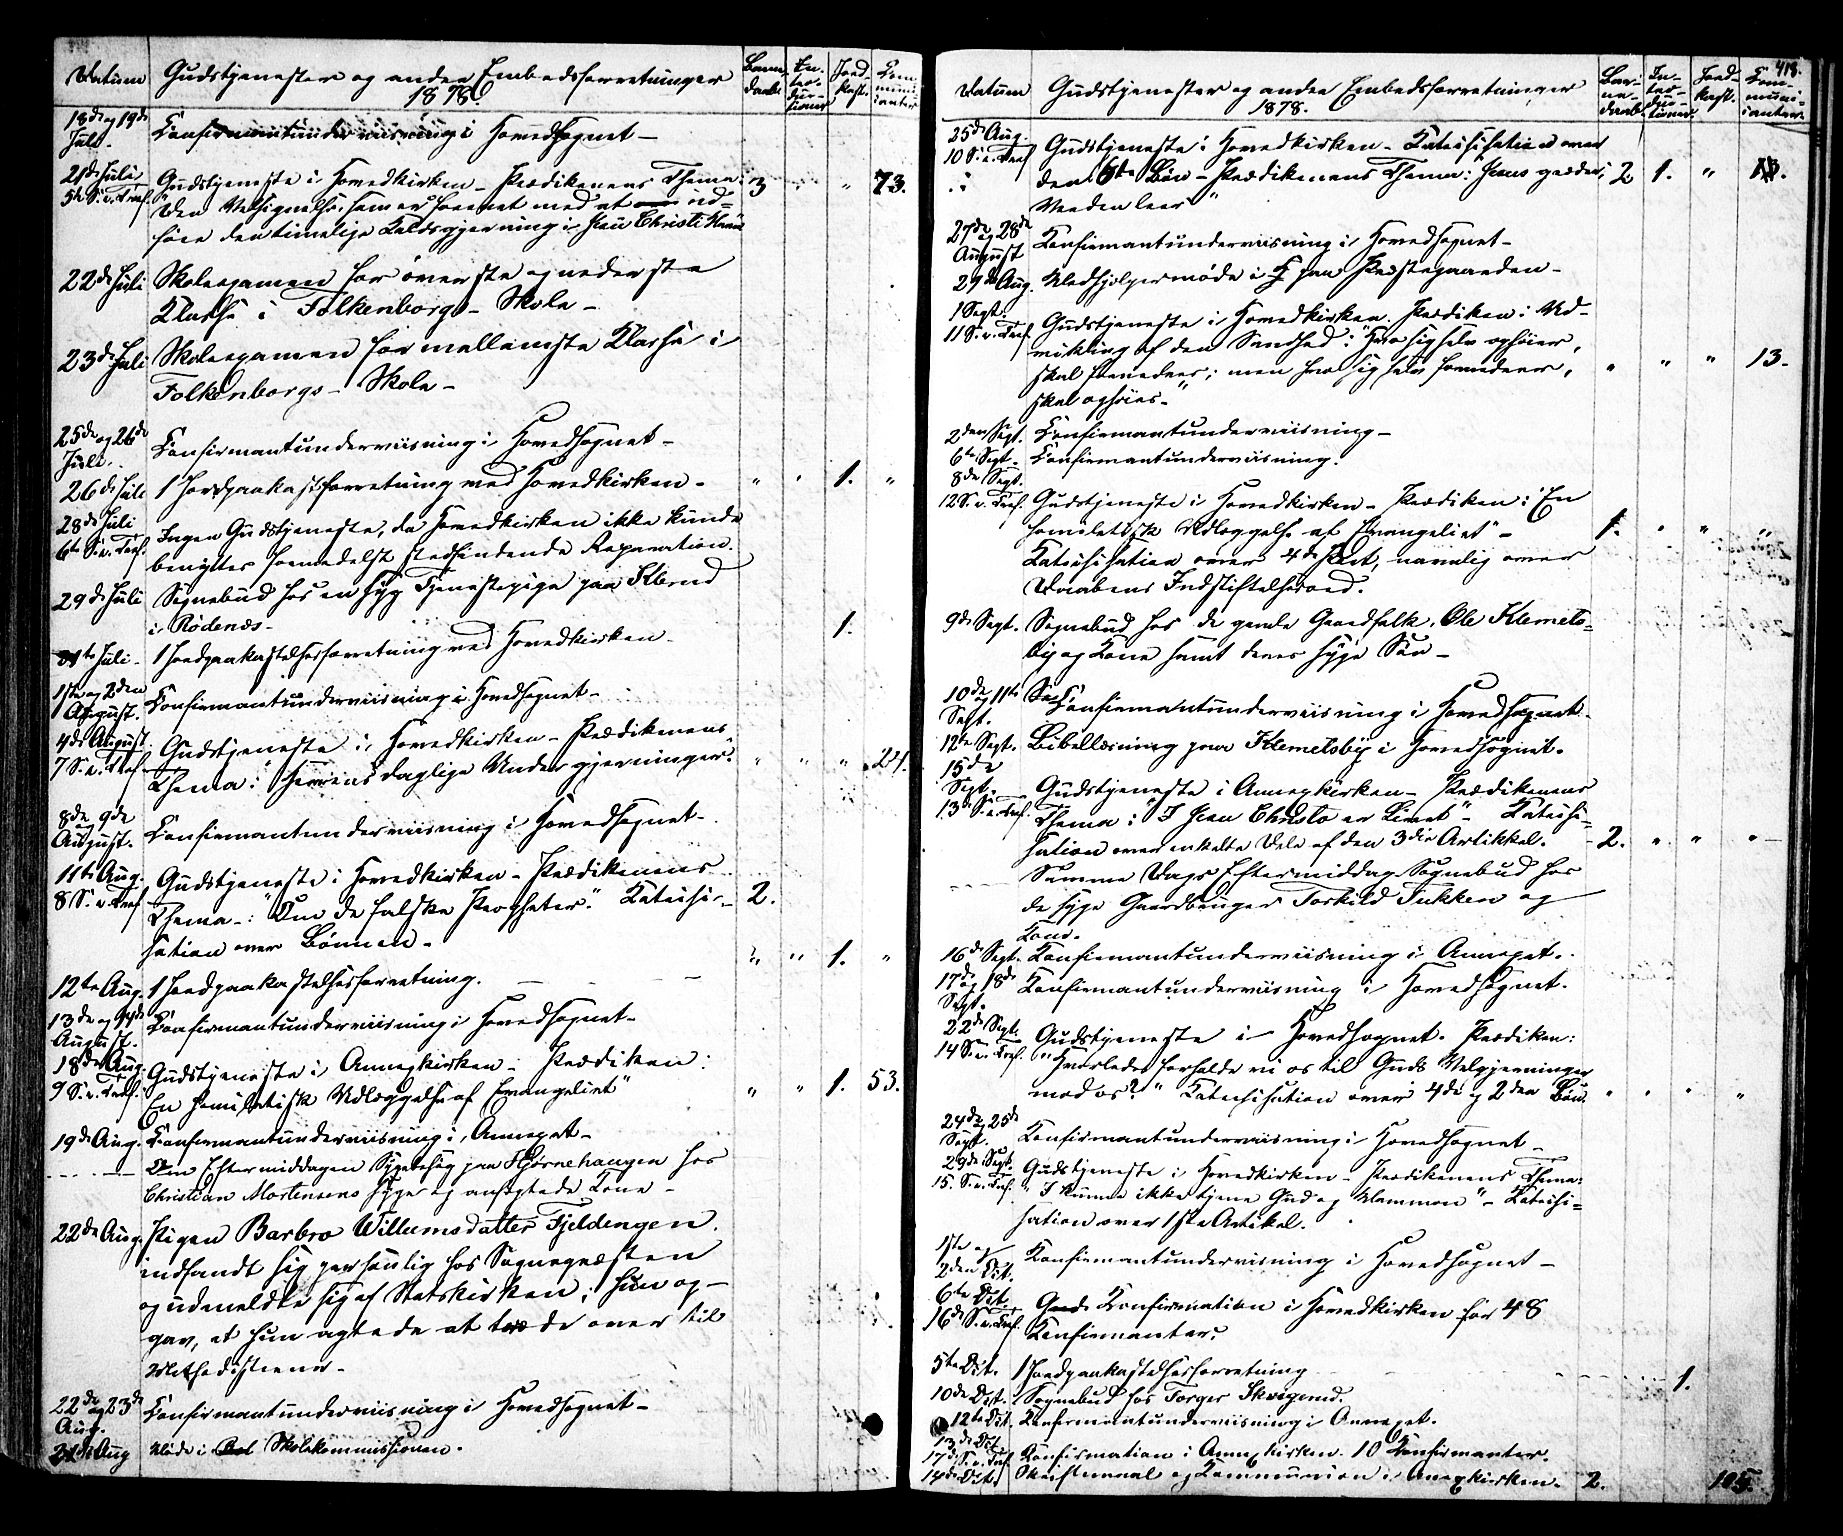 Datum Gudstjenester og andre Embedsforretninger 1878. Barne-daab In-tro-duc-tioner Jord-kast. Com-muni-canter
18de og 19de Juli. Konfirmantunderviisning i Hovedsognet –
21de Juli Gudstjeneste i Hovedkirken – Prædikenens Thema: 3 " " 73.
5te S. e. Tref. Den Velsignelse, som er forenet med at ud-
føre den timelige Kaldsgjerning i Jesu Christi Navn
22de Juli Skoleexamen for överste og nederste
Klasse i Folkenborgs – Skole –
23de Juli Skoleexamen for mellemste Klasse i
Folkenborgs – Skole –
25de og 26de Juli. Konfirmantunderviisning i Hovedsognet –
26de Juli 1 Jordpaakastforretning ved Hovedkirken – " " 1. "
28de Juli Ingen Gudstjeneste, da Hovedkirken ikke kunde
6te S. e. Tref. benyttes formedelst stedfindende Reparation.
29de Juli Sognebud hos en syg Tjenestepige paa
i Rödenæs – 1.
31te Juli – 1 Jordpaakastelsesforretning ved Hovedkirken –
1ste og 2den August. Konfirmantunderviisning i Hovedsognet –
4de August Gudstjeneste i Hovedkirken – Prædikenens
7 S. e. Tref. Thema: "Herrens daglige Undergjerninger." " " " 21.
8de og 9de August. Konfirmantunderviisning i Hovedsognet –
11te Aug. Gudstjeneste i Hovedkirken – Prædikenens
8 S. e. Tref. Thema –: "Om de falske Propheter." Katechi- 2.
sation over Bönnen – " " 1. "
12te Aug. 1 Jordpaakastelsesforretning.
13de og 14de August. Konfirmantunderviisning i Hovedsognet –
18de Aug. Gudstjeneste i Annexkirken – Prædiken:
9 S. e. Tref. En homiletisk Udlæggelse af Evangeliet" " " 1. 53.
19de Aug. Konfirmantunderviisning i Annexet –
Om Eftermiddagen Sygebesög paa Hjörnehaugen hos
Christian Mortensens syge og anfægtede Kone –
22de Aug. Pigen Barbro Willumsdatter Fjeldengen
indfandt sig personlig hos Sognepræsten
og udmeldte sig af Statskirken; hun op-
gav, at hun agtede at træde over til
Methodisterne –
22de og 23de Aug. Konfirmantunderviisning i Hovedsognet –
24de Aug Möde i Skolekommissionen.
418.
Datum Gudstjenester og andre Embedsforretninger 1878. Bar-ne-daab In-tro-duc-tioner Jord-kast. Com-muni-canter
25de Aug. Gudstjeneste i Hovedkirken – Katechisation over
10 S. e. Tref den 6te Bön – Prædikenens Thema: Jesus græder; 2 1. "
Verden leer"
27de og 28de August Konfirmantunderviisning i Hovedsognet –
29de Aug. Medhjelpermöde i paa Præstegaarden –
1 Sept. Gudstjeneste i Hovedkirken. Prædiken: Ud-
11 S. e. Tref. vikling af den Sandhed: "Hvo sig selv ophöier,
skal fornedres; men hvo sig selv fornedrer, " " " 13.
skal ophöies –"
2den Sept. Konfirmantunderviisning –
6te Sept. Konfirmantunderviisning.
8de Sept.
12 S. e. Tref. Gudstjeneste i Hovedkirken – Prædiken: "En
homiletisk Udlæggelse af Evangeliet" – 1. " " "
Katechisation over 4de Part, navnlig over
Daabens Indstiftelsesord.
9de Sept. Sognebud hos de gamle Gaardfolk, Ole Klemets-
by og Kone samt deres syge Sön –
10de og 11te Sept. Konfirmantunderviisning i Hovedsognet –
12te Sept. Bibellæsning paa Klemetsby i Hovedsognet.
15de Sept. Gudstjeneste i Annexkirken – Prædikenens
13 S. e. Tref. Thema: "I Jesu Christo er Livet" – Katechi-
sation over enkelte Dele af den 3die Artikkel. – 2. " " "
Samme Dags Eftermiddag Sognebud hos
de syge Gaardbruger Torkild Tukken og
Kone.
16de Sept. Konfirmantunderviisning i Annexet.
17de og 18de Sept. Konfirmantunderviisning i Hovedsognet.
22de Sept. Gudstjeneste i – Hovedsognet. Prædiken:
14 S. e. Tref. "Hvorledes forholde vi os til Guds Velgjerninger
mod os?" Katechisation over 4de og 2den Bön. " " " "
24de og 25de Sept. Konfirmantunderviisning i Hovedsognet –
29de Sept. Gudstjeneste i Hovedkirken – Prædikenens Thema:
15. S. e. Tref. "I kunne ikke tjene Gud og Mammon" – Katechi-
sation over 1ste Artikel.
1ste og 2den Okt. Konfirmantunderviisning i Hovedsognet –
6te Okt. Konfirmation i Hovedkirken for 48
16de S. e. Tref. Konfirmanter.
5te Okt. 1 Jordpaakastelsesforretning 1.
10de Okt. Sognebud hos Torger
12te Okt. Konfirmantunderviisning i Annexet.
13de Okt.
17de S. e. Tref Konfirmation i Annexkirken. 10 Konfirmanter.
14de Okt. Skriftemaal og Kommunion i Annexkirken. 2. 105.